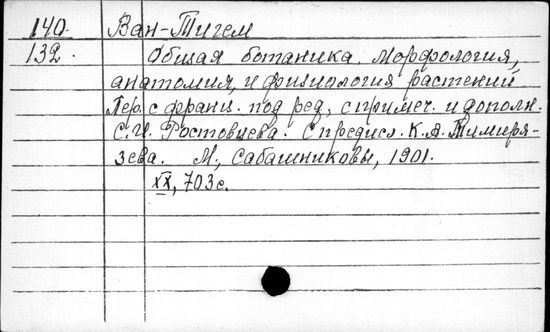 140. Ван-Тигем
132. Общая ботаника. Морфология,
анатомия, и физиология растений
Пер. с франц. под ред., с примеч. и дополн.
С.И. Ростовцева. С предисл. К.А. Тимиря-
зева. М., Сабашниковы, 1901.
XX, 703 с.